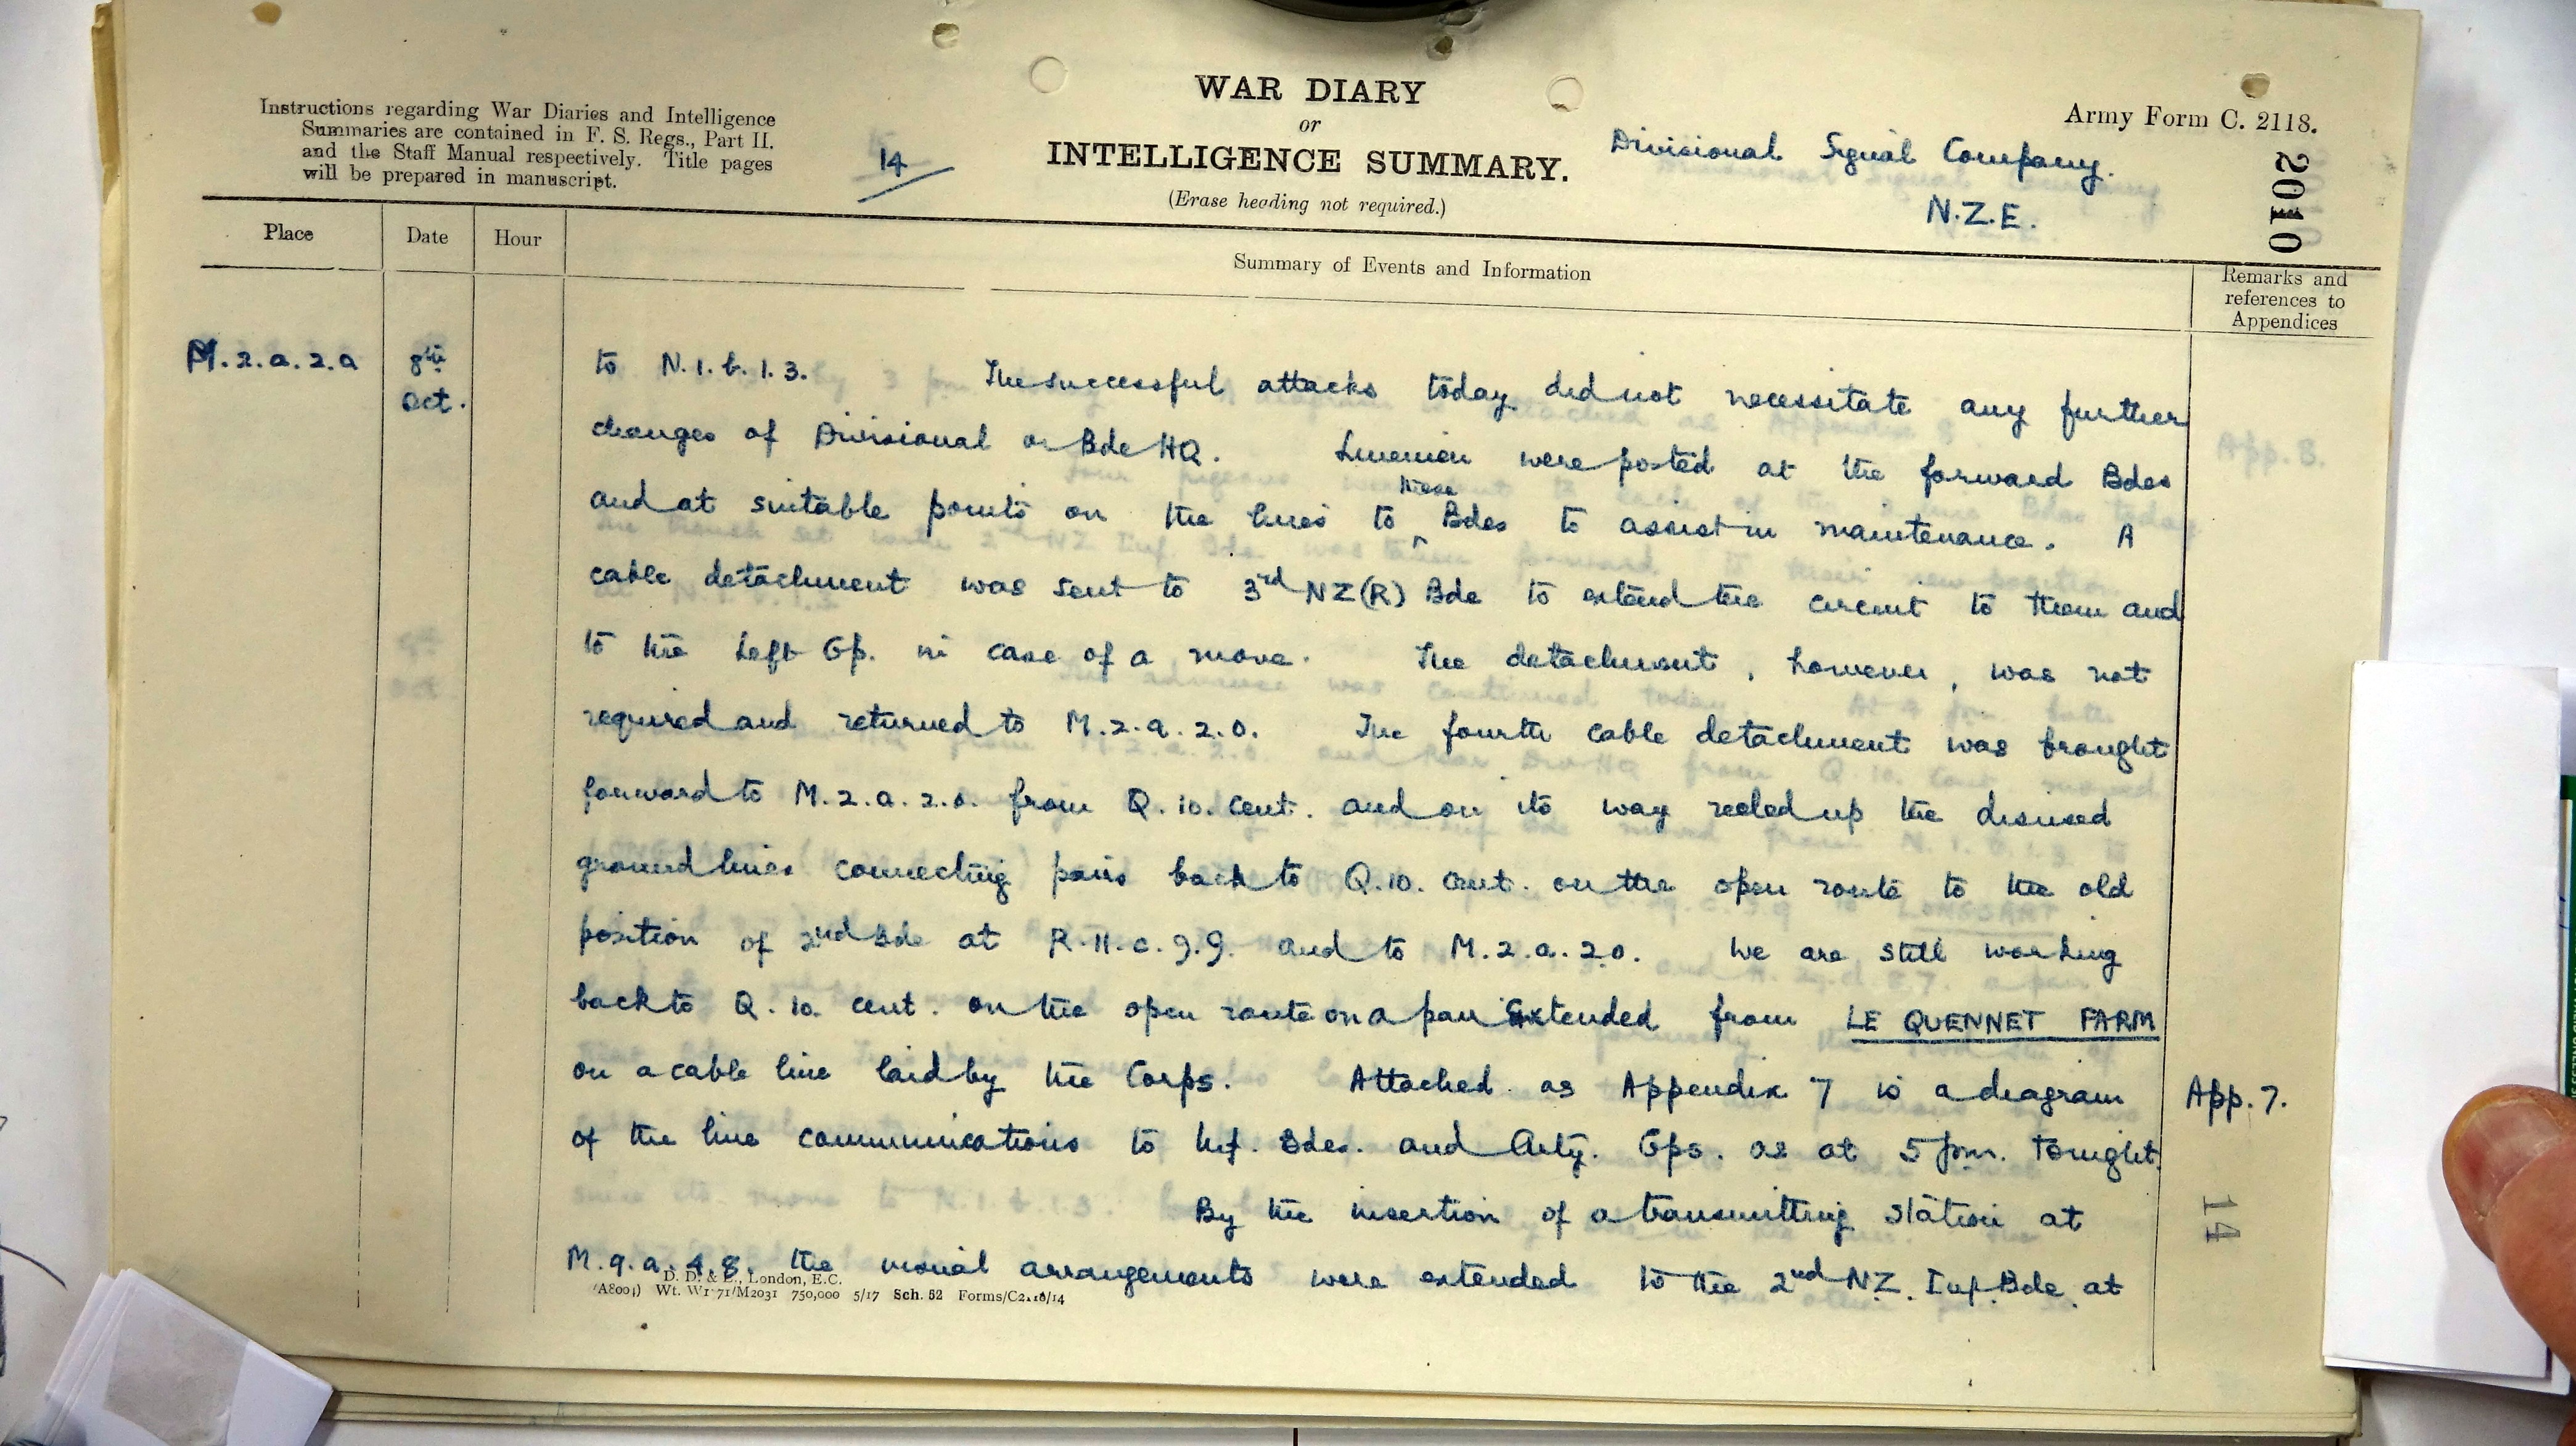 Instructions regarding War Diaries and Intelligence
Summaries are contained in F. S. Regs., Part II.
and the Staff Manual respectively. Title pages
will be prepared in manuscript.
14
WAR DIARY
or
INTELLIGENCE SUMMARY.
(Erase heading not required.)
Army Form C. 2118.
Divisional Signal Company.
N.Z.E.
2010
Place
Date
Hour
Summary of Events and Information
Remarks and
references to
Appendices
M.2.a.2.a
8th
Oct.
to N.1.b.1.3. The successful attacks today did not necessitate any further
changes of Divisional or Bde HQ. Linemen were posted at the forward Bdes
and at suitable points on the lines to these Bdes to assist in maintenance. A
cable detachment was sent to 3rd NZ(R) Bde to extend the circuit to them and
to the Left Gp. in case of a move. The detachment, however, was not
required and returned to M.2.a.2.0. The fourth cable detachment was brought
forward to M.2.a.2.0. from Q.10.cent. and on its way reeled up the disused
ground lines connecting pairs back to Q.10.cent. on the open route to the old
position of 2nd Bde at R.11.c.9.9. and to M.2.a.2.0. We are still working
back to Q.10.cent. on the open route on a pair Extended from LE QUENNET FARM
on a cable line laid by the Corps. Attached as Appendix 7 is a diagram
App. 7.
of the line communications to Inf. Bdes. and Arty. Gps. as at 5 p.m. tonight.
By the insertion of a transmitting station at
14
M.9.a.4.8. the visual arrangements were extended to the 2nd NZ. Inf. Bde. at
D. D. & L., London, E.C.
(A8001) Wt. W1771/M2031 750,000 5/17 Sch. 52 Forms/C2118/14